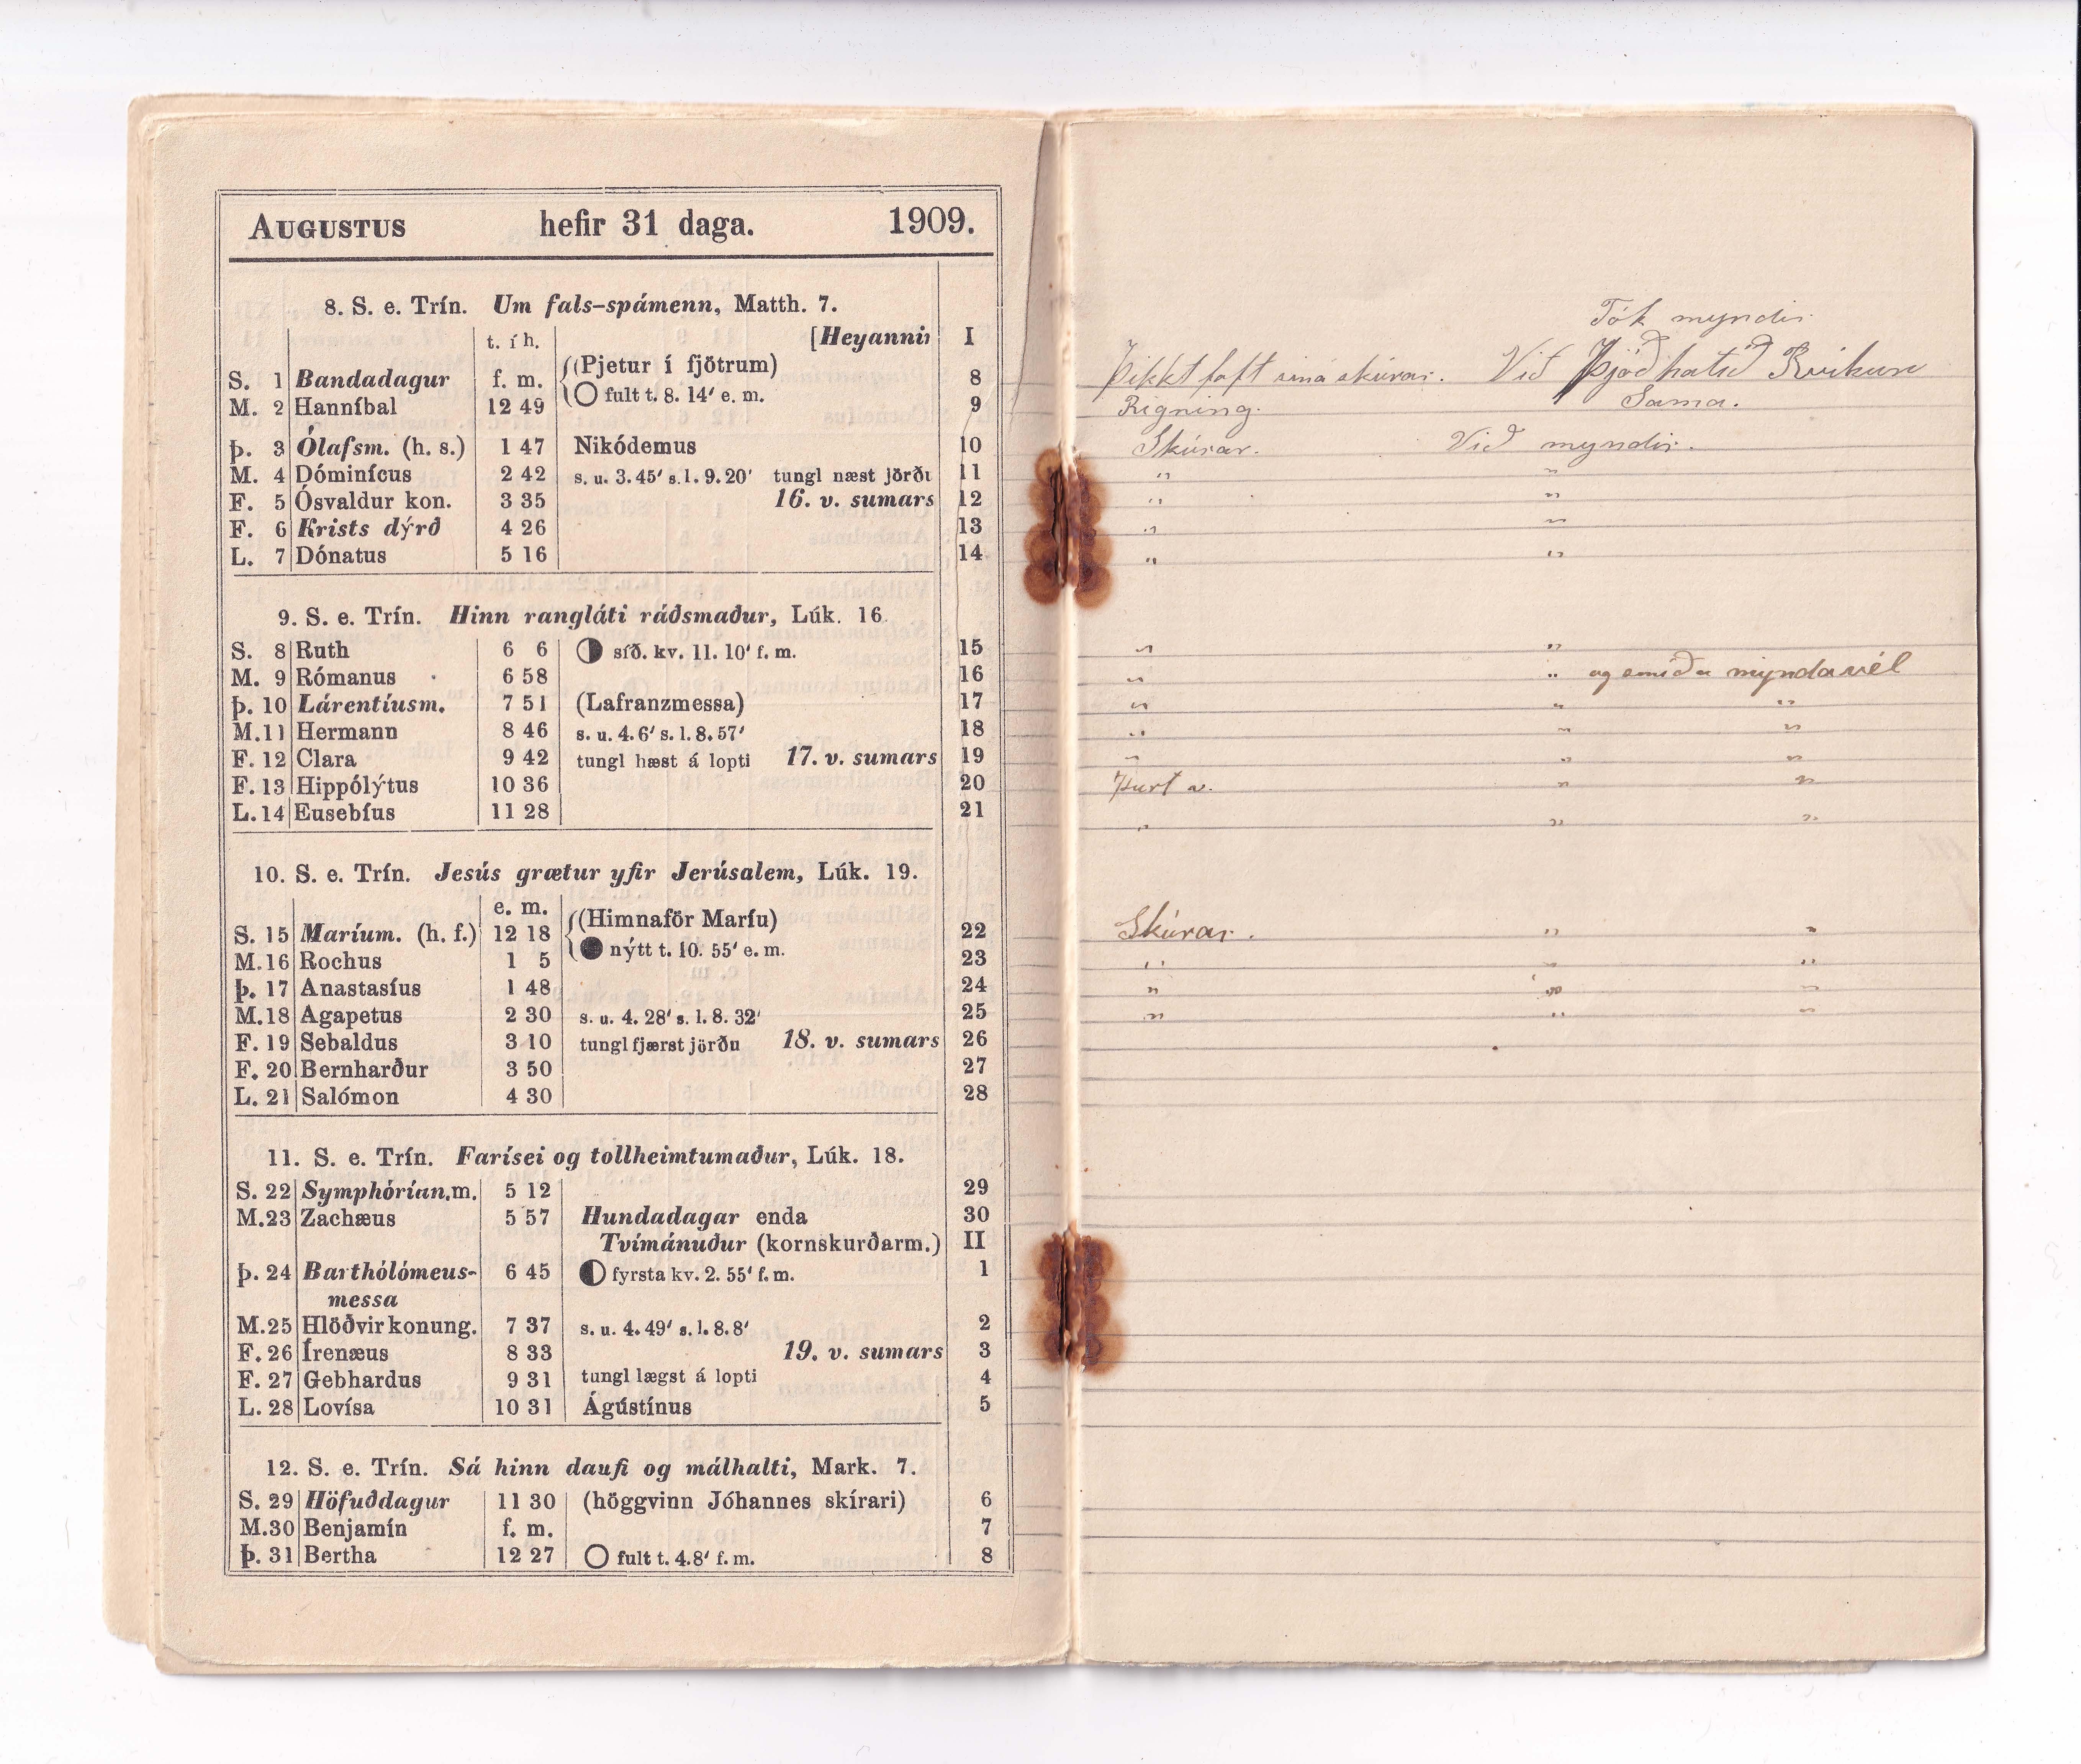 AUGUSTUS hefir 31 daga. 1909.
8. S. e. Trín. Um fals-spámenn, Matth. 7.
t. í h. [Heyannir I
S. 1 Bandadagur f. m. (Pjetur í fjötrum) 8
M. 2 Hanníbal 12 49 fult t. 8. 14' e. m. 9
Þ. 3 Ólafsm. (h. s.) 1 47 Nikódemus 10
M. 4 Dóminícus 2 42 s. u. 3. 45' s. l. 9. 20' tungl næst jörðu 11
F. 5 Ósvaldur kon. 3 35 16. v. sumars 12
F. 6 Krists dýrð 4 26 13
L. 7 Dónatus 5 16 14
9. S. e. Trín. Hinn rangláti ráðsmaður, Lúk. 16.
S. 8 Ruth 6 6 síð. kv. 11. 10' f. m. 15
M. 9 Rómanus 6 58 16
Þ. 10 Lárentíusm. 7 51 (Lafranzmessa) 17
M. 11 Hermann 8 46 s. u. 4. 6' s. l. 8. 57' 18
F. 12 Clara 9 42 tungl hæst á lopti 17. v. sumars 19
F. 13 Hippólýtus 10 36 20
L. 14 Eusebíus 11 28 21
10. S. e. Trín. Jesús grætur yfir Jerúsalem, Lúk. 19.
e. m. (Himnaför Maríu)
S. 15 Maríum. (h. f.) 12 18 22
M. 16 Rochus 1 5 nýtt t. 10. 55' e. m. 23
Þ. 17 Anastasíus 1 48 24
M. 18 Agapetus 2 30 s. u. 4. 28' s. l. 8. 32' 25
F. 19 Sebaldus 3 10 tungl fjærst jörðu 18. v. sumars 26
F. 20 Bernharður 3 50 27
L. 21 Salómon 4 30 28
11. S. e. Trín. Farísei og tollheimtumaður, Lúk. 18.
S. 22 Symphórían.m. 5 12 29
M. 23 Zachæus 5 57 Hundadagar enda 30
Tvímánuður (kornskurðarm.) II
Þ. 24 Barthólómeus- 6 45 fyrsta kv. 2. 55' f. m. 1
messa
M. 25 Hlöðvir konung. 7 37 s. u. 4. 49' s. l. 8. 8' 2
F. 26 Írenæus 8 33 19. v. sumars 3
F. 27 Gebhardus 9 31 tungl lægst á lopti 4
L. 28 Lovísa 10 31 Ágústínus 5
12. S. e. Trín. Sá hinn daufi og málhalti, Mark. 7.
S. 29 Höfuðdagur 11 30 (höggvinn Jóhannes skírari) 6
M. 30 Benjamín f. m. 7
Þ. 31 Bertha 12 27 fult t. 4. 8' f. m. 8
Tók myndir
Þikkt loft smá skúrar. Við Þjóðhatið
Rigning. Sama.
Skúrar. Við myndir.
" "
" "
" "
" "
" "
" " og smíða myndavél
" " "
" " "
" " "
Þurt v. " "
" " "
Skúrar. " "
" " "
" " "
" " "